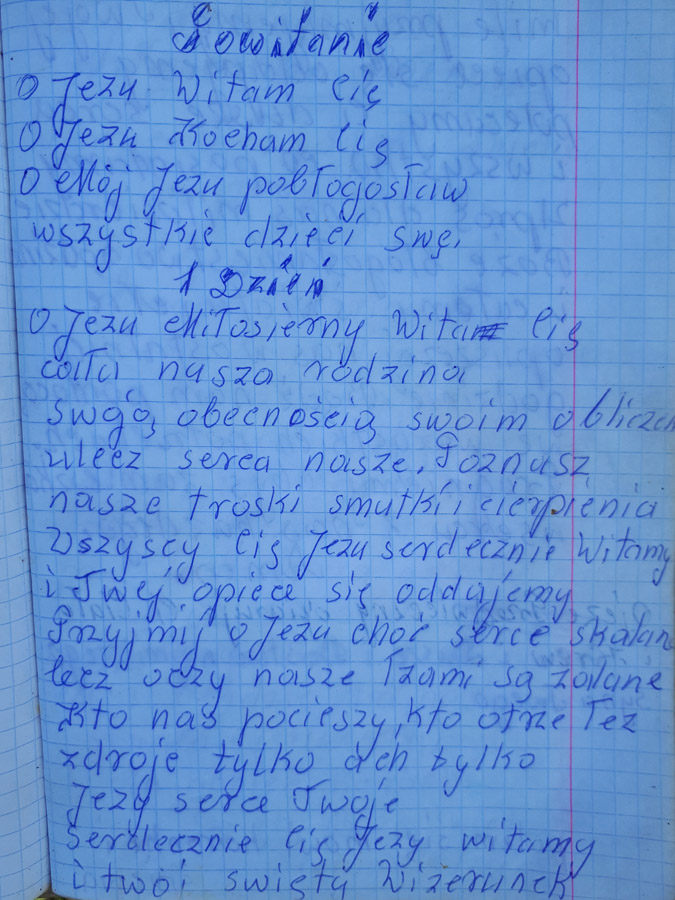 Powitanie
O Jezu Witam Cię
O Jezu Kocham Cię
O Mój Jezu pobłogosław
wszystkie dzieci swę.
1 Dzień
O Jezu Miłosierny Wita Cię
cała nasza rodzina
swą obecnością swoim obliczem
ulecz serca nasze. Poznasz
nasze troski smutki i cierpienia
Wszyscy Cię Jezu serdecznie Witamy
i Twej opiece się oddajemy
Przyjmij o Jezu choć serce skalane
lecz oczy nasze łzami są zalane
Kto nas pocieszy, kto otrze łez
zdroje tylko ach tylko
Jezy serce Twoje
Serdecznie Cię Jezy witamy
i twój swięty Wizerunek